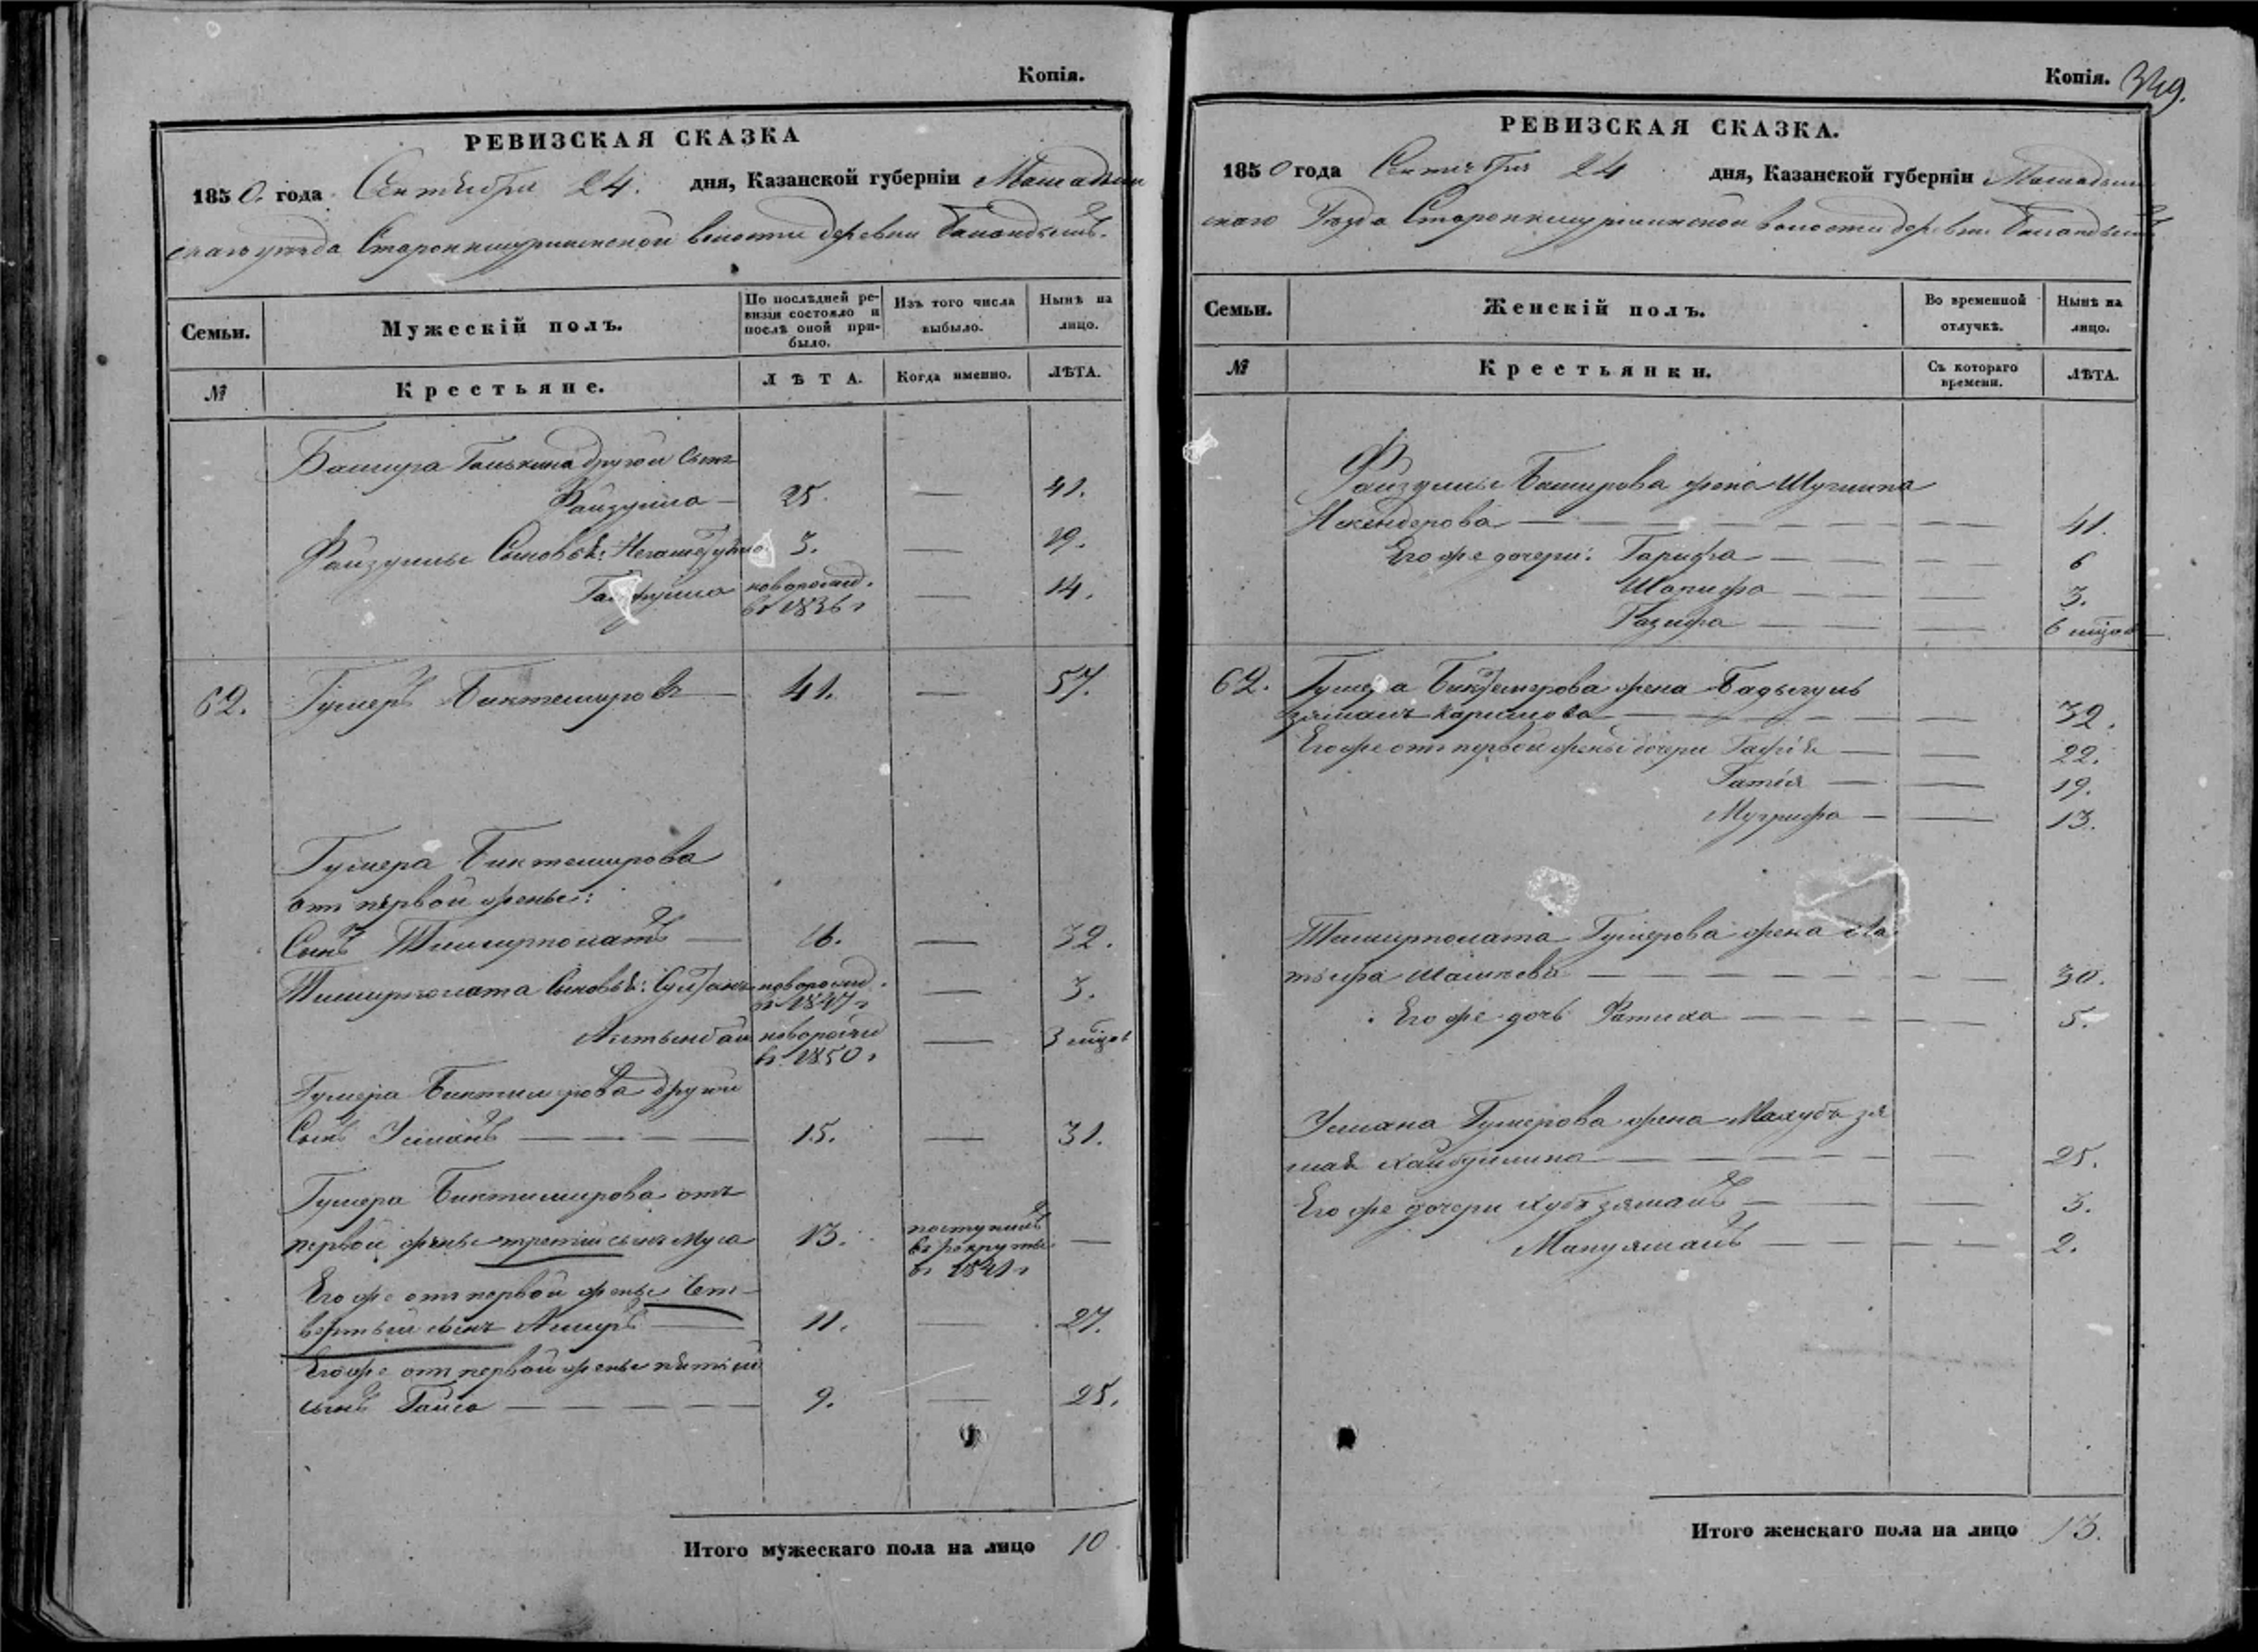 Копія.
РЕВИЗСКАЯ СКАЗКА
1850. года Сентября 24. дня, Казанской губерніи Мамадыш
скаго уѣзда волости деревни
Семьи.
Мужескій полъ.
По послѣдней ре-
визіи состояло и
послѣ оной при-
было.
Изъ того числа
выбыло.
Нынѣ на
лицо.
№
Крестьяне.
ЛѢТА.
Когда именно.
ЛѢТА.
Башира другой сынъ
Файзулла — 25. — 41.
Файзуллы Сыновья: 3. — 19.
новорожд.
въ 1836 г — 14.
62. Гумеръ Биктемировъ — 41. — 57.
Гумера Биктемирова
отъ первой жены:
Сынъ Тимирполатъ — 16. — 32.
Тимирполата Сыновья: Султанъ новорожд.
въ 1847 г — 3.
Алтынбай новорожд
въ 1850 г — 3 мѣсяц
Гумера Биктемирова другой
Сынъ Усманъ — — — — 15. — 31.
Гумера Биктимирова отъ
первой жены третій сынъ Муса 13. поступилъ
въ рекруты
въ 1841 г —
Его же отъ первой жены Чет-
вертый сынъ Амиръ — 11. — 27.
Его же отъ первой жены пятый
сынъ Гайса — — — — 9. — 25.
Итого мужескаго пола на лицо 10.
Копія. 349.
РЕВИЗСКАЯ СКАЗКА.
1850 года Сентября 24 дня, Казанской губерніи Мамадыш
скаго Уѣзда волости деревни
Семьи.
Женскій полъ.
Во временной
отлучкѣ.
Нынѣ на
лицо.
№
Крестьянки.
Съ котораго
времени.
ЛѢТА.
Файзуллы Баширова жена
Искендерова — — — — — 41.
Его же дочери: Гарифа — — 6
Шарифа — — 3.
Разифа — — 6 мѣсяц
62. Гумера Биктемирова жена Бадыгуль
зяманъ Каримова — — — — 32.
Его же отъ первой жены дочери — — 22.
— — 19.
— — 13.
Тимирполата Гумерова жена
— — — — — — 30.
Его же дочь Фатиха — — — — 5.
Усмана Гумерова жена Махубъ зя
малъ Хайбуллина — — — — 25.
Его же дочери — — 3.
— — — — 2.
Итого женскаго пола на лицо 13.